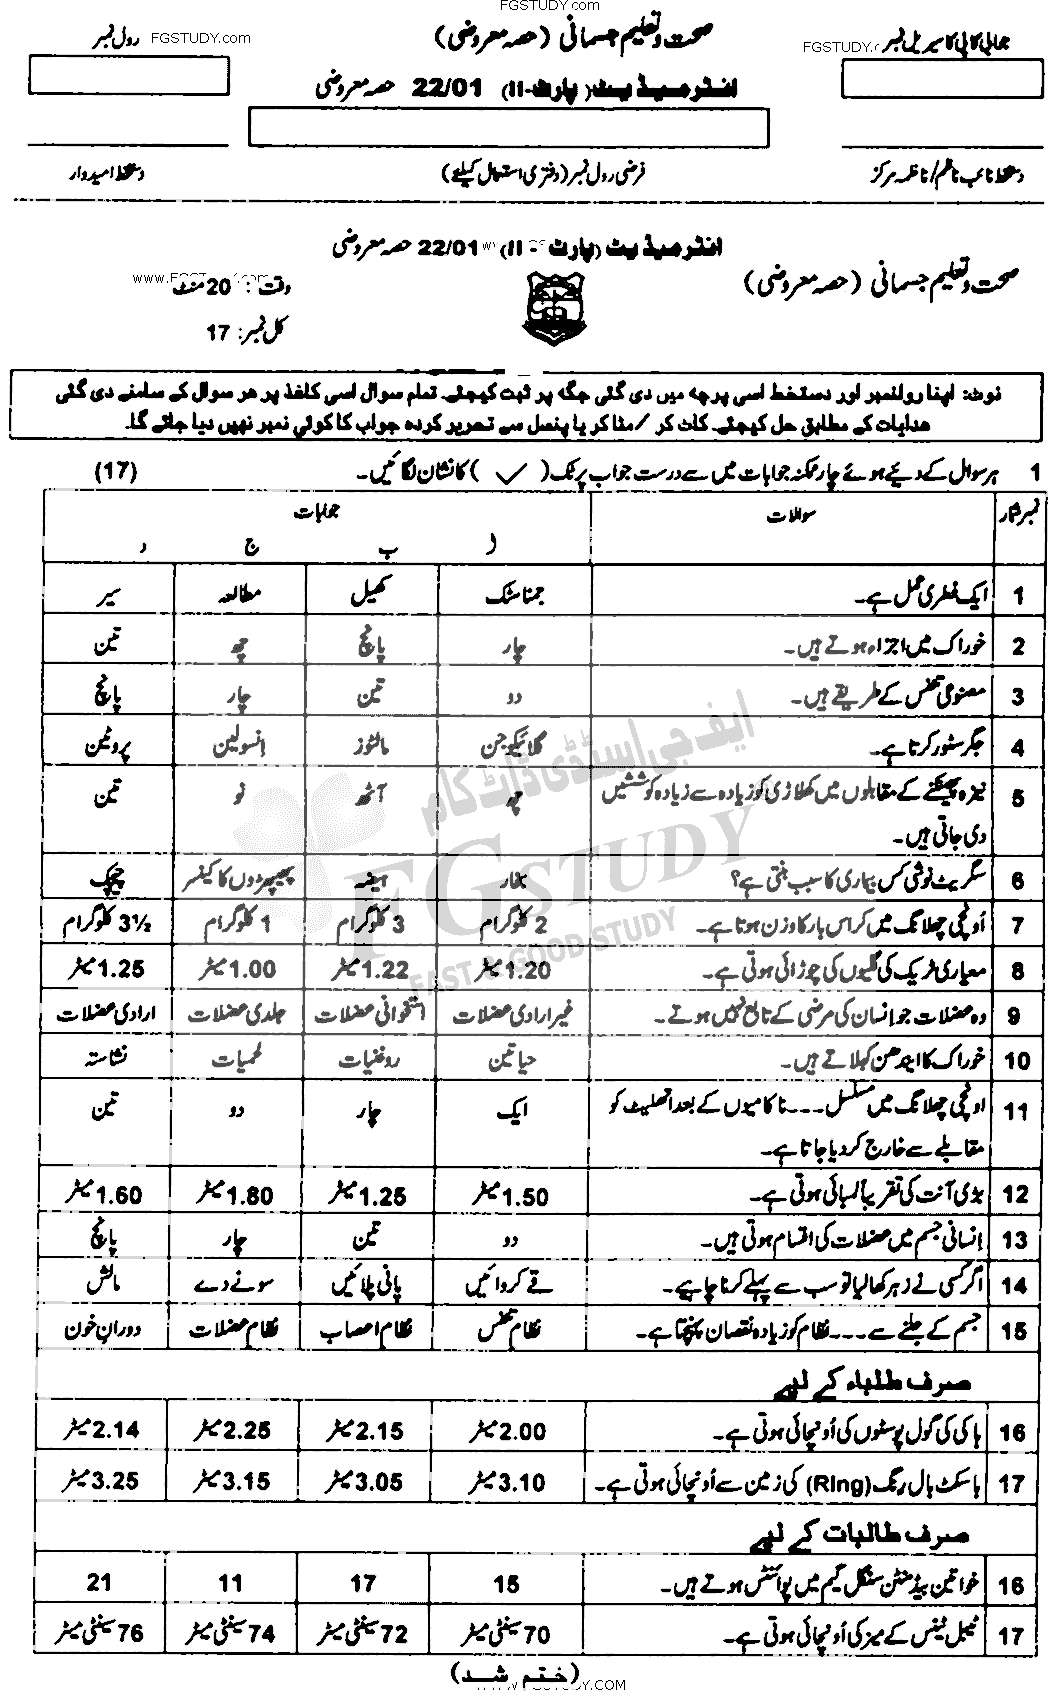 FGSTUDY.com
رول نمبر FGSTUDY.com صحت و تعلیم جسمانی (حصہ معروضی) جوابی کاپی کا سیریل نمبر
انٹرمیڈیٹ (پارٹ-II) 22/01 حصہ معروضی
دستخط نائب ناظم/ناظمہ مرکز فرضی رول نمبر (دفتری استعمال کیلئے) دستخط امیدوار
انٹرمیڈیٹ (پارٹ - II) 22/01 حصہ معروضی
صحت و تعلیم جسمانی (حصہ معروضی) وقت: 20 منٹ
کل نمبر: 17
نوٹ: اپنا رولنمبر اور دستخط اسی پرچہ میں دی گئی جگہ پر ثبت کیجئے۔ تمام سوال اسی کاغذ پر ھر سوال کے سامنے دی گئی
ھدایات کے مطابق حل کیجئے۔ کاٹ کر /مٹا کر یا پنسل سے تحریر کردہ جواب کا کوئی نمبر نہیں دیا جائے گا۔
1 ہر سوال کے دیئے ہوئے چار ممکنہ جوابات میں سے درست جواب پر ٹک (✓) کا نشان لگائیں۔ (17)
نمبر شمار سوالات جوابات
ا ب ج د
1 ایک فطری عمل ہے۔ جمناسٹک کھیل مطالعہ سیر
2 خوراک میں اجزاء ہوتے ہیں۔ چار پانچ چھ تین
3 مصنوعی تنفس کے طریقے ہیں۔ دو تین چار پانچ
4 جگر سٹور کرتا ہے۔ گلائیکوجن مالٹوز انسولین پروٹین
5 نیزہ پھینکنے کے مقابلوں میں کھلاڑی کو زیادہ سے زیادہ کوششیں چھ آٹھ نو تین
دی جاتی ہیں۔
6 سگریٹ نوشی کس بیماری کا سبب بنتی ہے؟ بخار ہیضہ پھیپھڑوں کا کینسر چیچک
7 اُونچی چھلانگ میں کراس بار کا وزن ہوتا ہے۔ 2 کلوگرام 3 کلوگرام 1 کلوگرام 3½ کلوگرام
8 معیاری ٹریک کی گلیوں کی چوڑائی ہوتی ہے۔ 1.20 میٹر 1.22 میٹر 1.00 میٹر 1.25 میٹر
9 وہ عضلات جو انسان کی مرضی کے تابع نہیں ہوتے۔ غیر ارادی عضلات استخوانی عضلات جلدی عضلات ارادی عضلات
10 خوراک کا ایندھن کہلاتے ہیں۔ حیاتین روغنیات لحمیات نشاستہ
11 اونچی چھلانگ میں مسلسل ۔۔۔۔ ناکامیوں کے بعد اتھلیٹ کو ایک چار دو تین
مقابلے سے خارج کر دیا جاتا ہے۔
12 بڑی آنت کی تقریباً لمبائی ہوتی ہے۔ 1.50 میٹر 1.25 میٹر 1.80 میٹر 1.60 میٹر
13 انسانی جسم میں عضلات کی اقسام ہوتی ہیں۔ دو تین چار پانچ
14 اگر کسی نے زہر کھا لیا تو سب سے پہلے کرنا چاہیے۔ قے کروائیں پانی پلائیں سونے دے مالش
15 جسم کے جلنے سے ۔۔۔۔ نظام کو زیادہ نقصان پہنچتا ہے۔ نظام تنفس نظام اعصاب نظام عضلات دوران خون
صرف طلباء کے لیے
16 ہاکی کی گول پوسٹوں کی اُونچائی ہوتی ہے۔ 2.00 میٹر 2.15 میٹر 2.25 میٹر 2.14 میٹر
17 باسکٹ بال رنگ (Ring) کی زمین سے اُونچائی ہوتی ہے۔ 3.10 میٹر 3.05 میٹر 3.15 میٹر 3.25 میٹر
صرف طالبات کے لیے
16 خواتین بیڈمنٹن سنگل گیم میں پوائنٹس ہوتے ہیں۔ 15 17 11 21
17 ٹیبل ٹینس کے میز کی اُونچائی ہوتی ہے۔ 70 سینٹی میٹر 72 سینٹی میٹر 74 سینٹی میٹر 76 سینٹی میٹر
(ختم شد)
ایف جی اسٹڈی ڈاٹ کام
FGSTUDY
FAST & GOOD STUDY